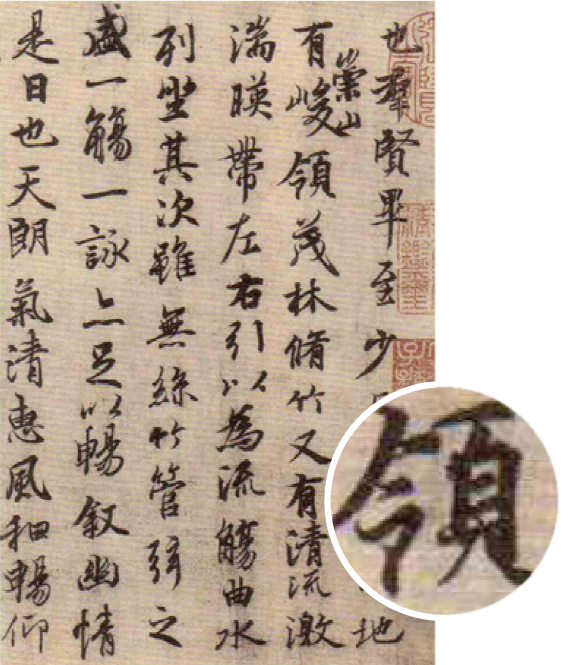 也羣賢畢至少地
有崇山峻領茂林脩竹又有清流激
湍暎帶左右引以為流觴曲水
列坐其次雖無絲竹管弦之
盛一觴一詠亦足以暢敘幽情
是日也天朗氣清惠風和暢仰
領